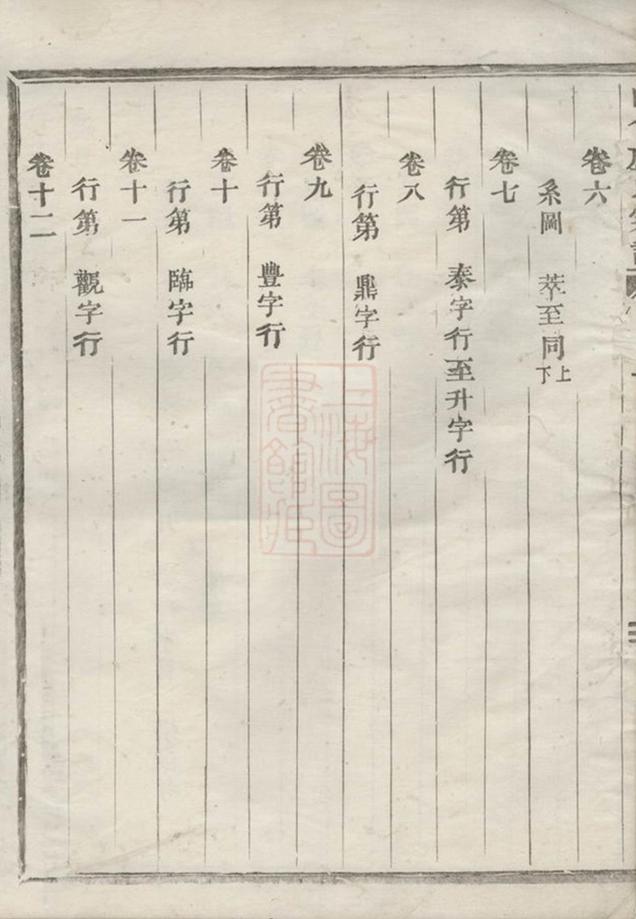 卷六
系圖　萃至同上下
卷七
行第　泰字行至升字行
卷八
行第　鼎字行
卷九
行第　豐字行
卷十
行第　臨字行
卷十一
行第　觀字行
卷十二
上海圖書館藏